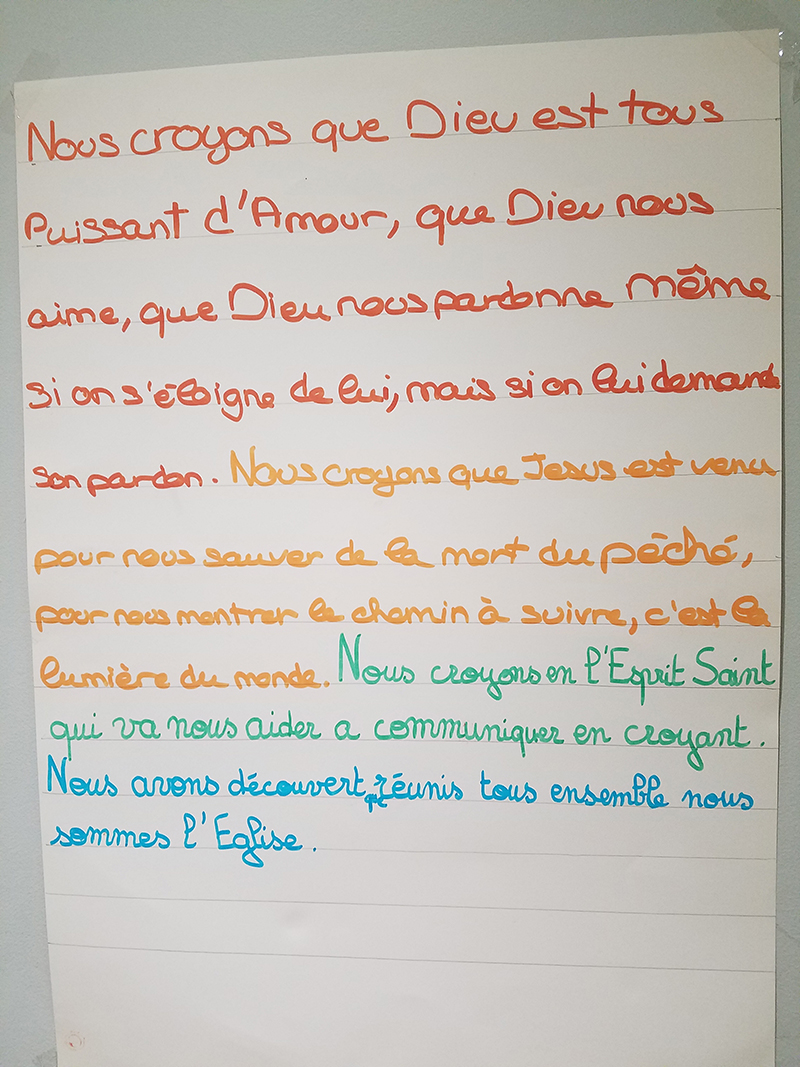 Nous croyons que Dieu est tous
Puissant d'Amour, que Dieu nous
aime, que Dieu nous pardonne même
si on s'éloigne de lui, mais si on lui demande
son pardon. Nous croyons que Jesus est venu
pour nous sauver de la mort du pêché,
pour nous montrer le chemin à suivre, c'est la
lumière du monde. Nous croyons en l'Esprit Saint
qui va nous aider a communiquer en croyant.
Nous avons découvert, que réunis tous ensemble nous
sommes l'Eglise.